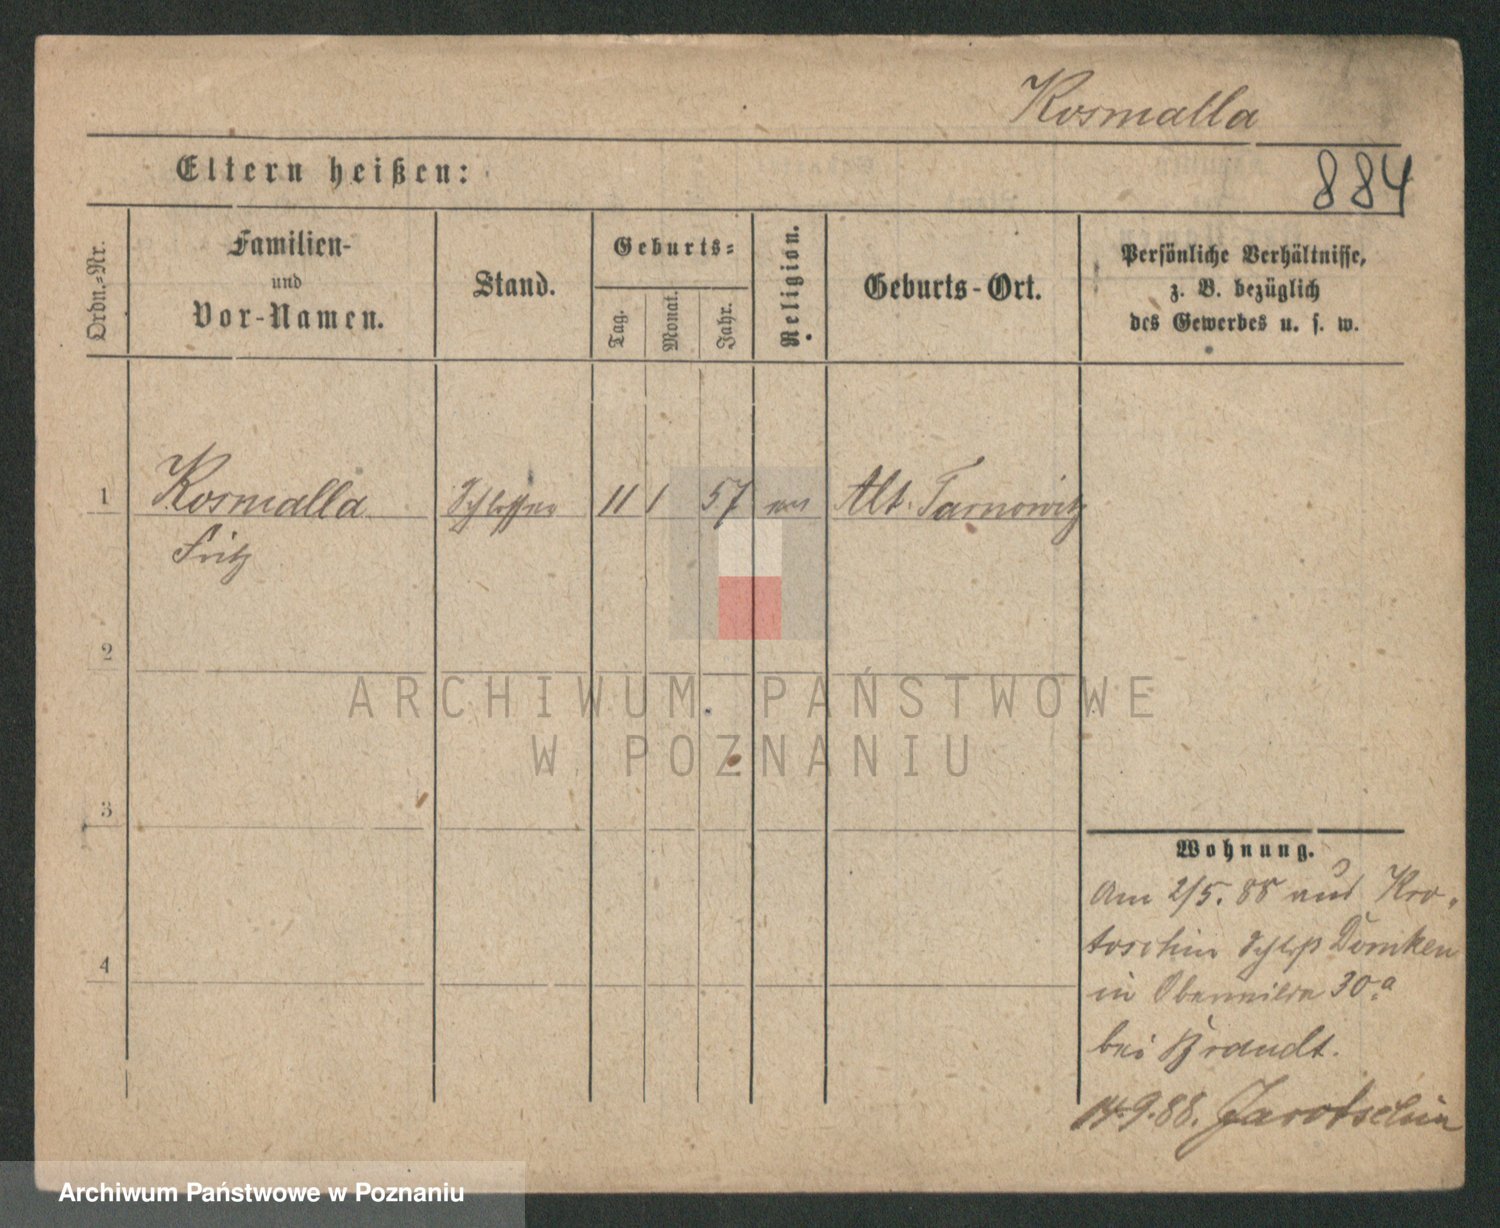 Kosmalla
884
Eltern heißen:
Ordn.-Nr.
Familien-
und
Vor-Namen.
Stand.
Geburts-
Tag.
Monat.
Jahr.
Religion.
Geburts-Ort.
Persönliche Verhältnisse,
z. B. bezüglich
des Gewerbes u. s. w.
1 Kosmalla Schlosser 11 1 57 Alt. Tarnowitz
Fritz
2
ARCHIWUM PAŃSTWOWE
W POZNANIU
3
4
Wohnung.
Am 2/5. 88 aus Kro-
toschin
in Oberwilda 30.a
bei Brandt.
14.9.88. Jarotschin
Archiwum Państwowe w Poznaniu